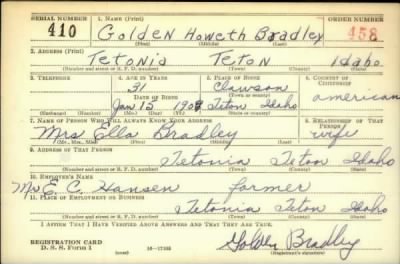 SERIAL NUMBER 1. NAME (Print) ORDER NUMBER
410 Golden Howeth Bradley 458
(First) (Middle) (Last)
2. ADDRESS (Print)
Tetonia Teton Idaho
(Number and street or R. F. D. number) (Town) (County) (State)
3. TELEPHONE 4. AGE IN YEARS 5. PLACE OF BIRTH 6. COUNTRY OF CITIZENSHIP
31 Clawson American
DATE OF BIRTH (Town or county)
Jan 15 1909 Teton Idaho
(Exchange) (Number) (Mo.) (Day) (Yr.) (State or country)
7. NAME OF PERSON WHO WILL ALWAYS KNOW YOUR ADDRESS 8. RELATIONSHIP OF THAT PERSON
Mrs Ella Bradley wife
(Mr., Mrs., Miss) (First) (Middle) (Last)
9. ADDRESS OF THAT PERSON
Tetonia Teton Idaho
(Number and street or R. F. D. number) (Town) (County) (State)
10. EMPLOYER'S NAME
Mr E. C. Hansen farmer
11. PLACE OF EMPLOYMENT OR BUSINESS
Tetonia Teton Idaho
(Number and street or R. F. D. number) (Town) (County) (State)
I AFFIRM THAT I HAVE VERIFIED ABOVE ANSWERS AND THAT THEY ARE TRUE.
REGISTRATION CARD
D. S. S. Form 1 (over) 16—17105 Golden Bradley
(Registrant's signature)